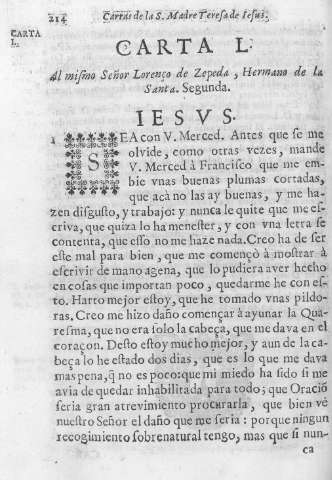 214 Cartas de la S. Madre Teresa de Iesus.
CARTA
L.
CARTA L.
Al mismo Señor Lorenço de Zepeda, Hermano de la
Santa. Segunda.
IESVS.
1 SEA con V. Merced. Antes que se me
olvide, como otras vezes, mande
V. Merced à Francisco que me em-
bie vnas buenas plumas cortadas,
que acà no las ay buenas, y me ha-
zen disgusto, y trabajo: y nunca le quite que me es-
criva, que quiza lo ha menester, y con vna letra se
contenta, que esso no me haze nada. Creo ha de ser
este mal para bien, que me començò à mostrar à
escrivir de mano agena, que lo pudiera aver hecho
en cosas que importan poco, quedarme he con es-
to. Harto mejor estoy, que he tomado vnas pildo-
ras, Creo me hizo daño començar à ayunar la Qua-
resma, que no era solo la cabeça, que me dava en el
coraçon. Desto estoy mucho mejor, y aun de la ca-
beça lo he estado dos dias, que es lo que me dava
mas pena, q̃ no es poco: que mi miedo ha sido si me
avia de quedar inhabilitada para todo; que Oraciõ
seria gran atrevimiento procurarla, que bien vè
nuestro Señor el daño que me seria: porque ningun
recogimiento sobrenatural tengo, mas que si nun-
ca